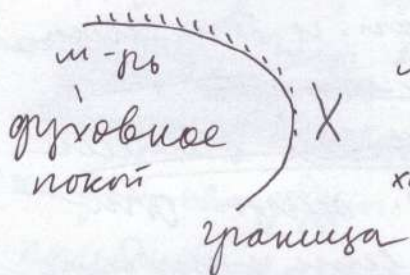 м-рь
духовное
покой
X
граница